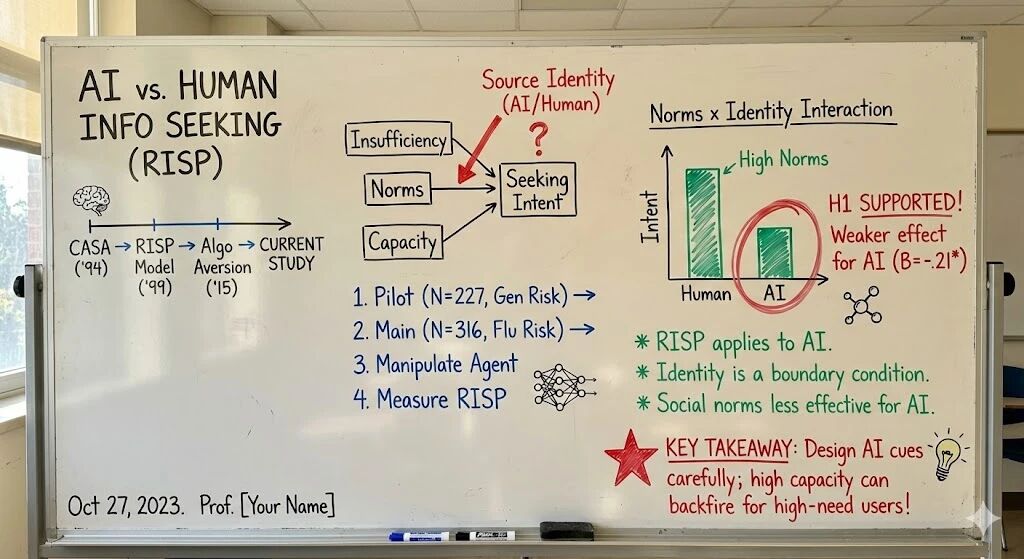 AI vs. HUMAN
INFO SEEKING
(RISP)
CASA → RISP → Algo → CURRENT
('94) Model Aversion STUDY
('99) ('15)
Oct 27, 2023. Prof. [Your Name]
Source Identity
(AI/Human)
?
Insufficiency
Norms
Capacity
Seeking
Intent
1. Pilot (N=227, Gen Risk) →
2. Main (N=316, Flu Risk) →
3. Manipulate Agent
4. Measure RISP
Norms x Identity Interaction
Intent
High Norms
Human AI
H1 SUPPORTED!
Weaker effect
for AI (B=-.21*)
* RISP applies to AI.
* Identity is a boundary condition.
* Social norms less effective for AI.
KEY TAKEAWAY: Design AI cues
carefully; high capacity can
backfire for high-need users!